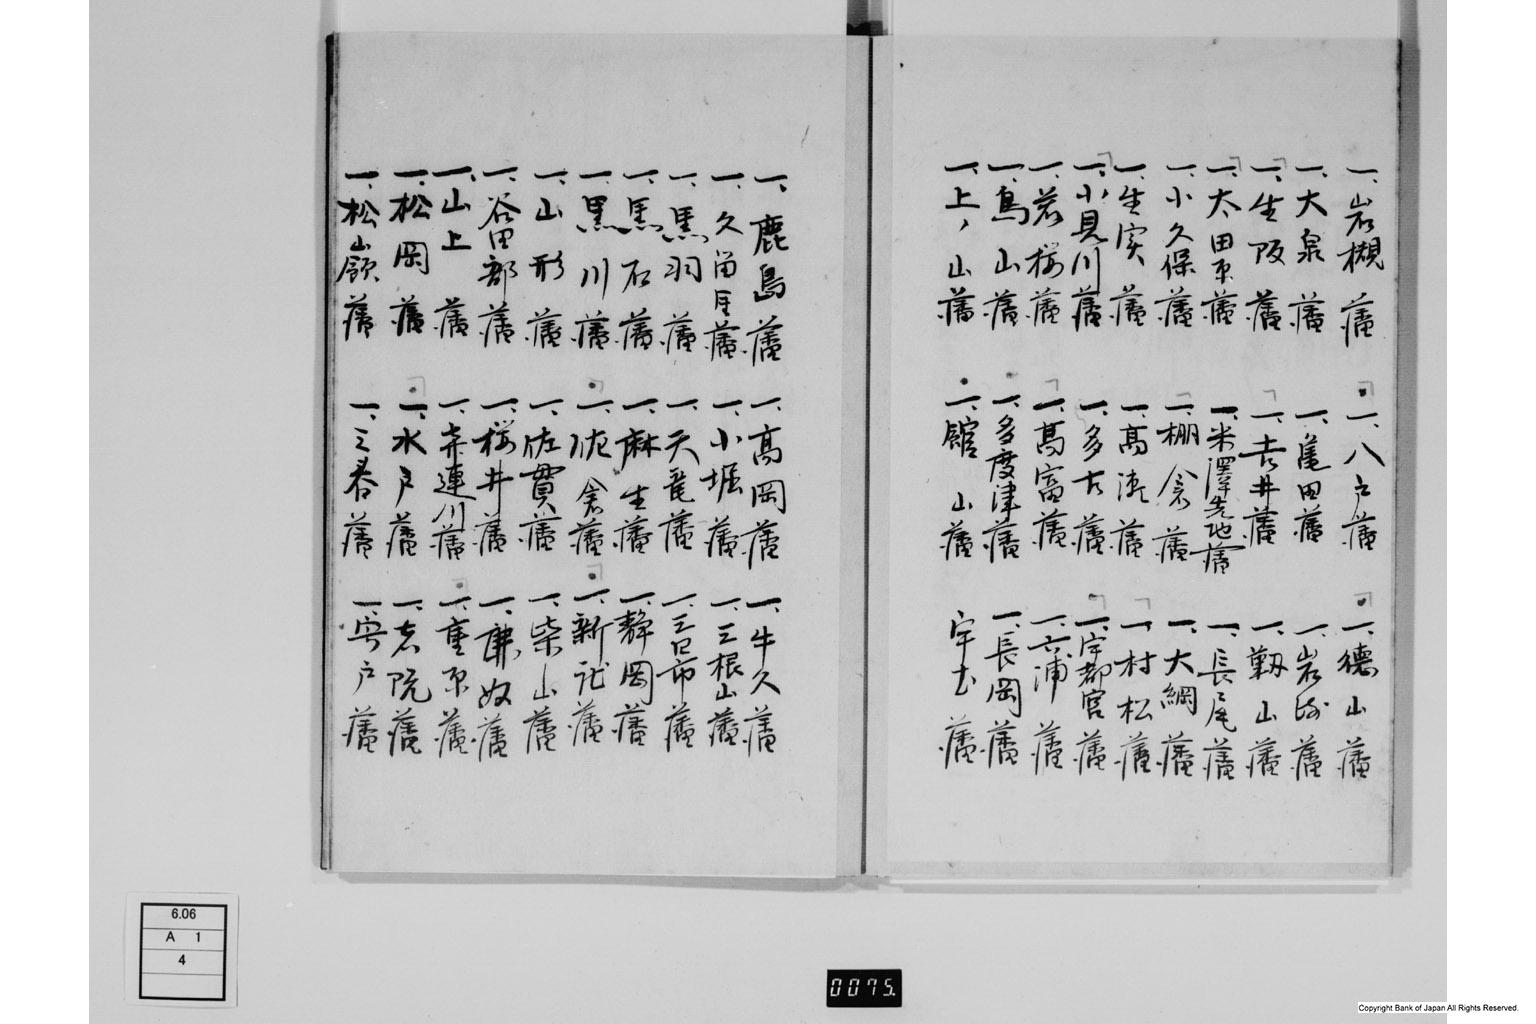 一、岩槻藩
一、大泉藩
一、生坂藩
一、太田原藩
一、小久保藩
一、生実藩
一、小見川藩
一、若桜藩
一、烏山藩
一、上ノ山藩
一、八戸藩
一、亀田藩
一、吉井藩
一、米澤先地藩
一、棚倉藩
一、高津藩
一、多古藩
一、高富藩
一、多度津藩
一、舘山藩
一、徳山藩
一、岩崎藩
一、勤山藩
一、長尾藩
一、大綱藩
一、村松藩
一、宇都宮藩
一、六浦藩
一、長岡藩
宇土藩
一、鹿島藩
一、久留里藩
一、黒羽藩
一、黒石藩
一、黒川藩
一、山形藩
一、谷田部藩
一、山上藩
一、松岡藩
一、松嶺藩
一、高岡藩
一、小堀藩
一、天童藩
一、麻生藩
一、佐倉藩
一、佐貫藩
一、桜井藩
一、喜連川藩
一、水戸藩
一、三春藩
一、牛久藩
一、三根山藩
一、三日市藩
一、静岡藩
一、新谷藩
一、柴山藩
一、重原藩
一、宍戸藩
6.06
A 1
4
0075.
Copyright Bank of Japan All Rights Reserved.